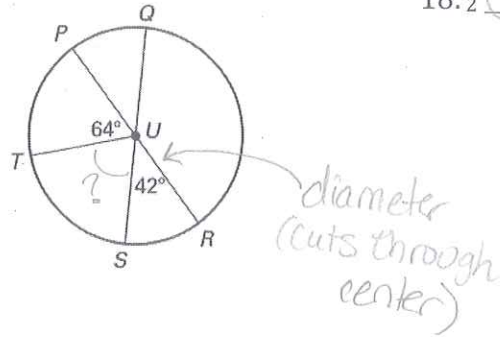 18.2
Q
P
64°
U
T
?
42°
diameter
(cuts through
center)
R
S